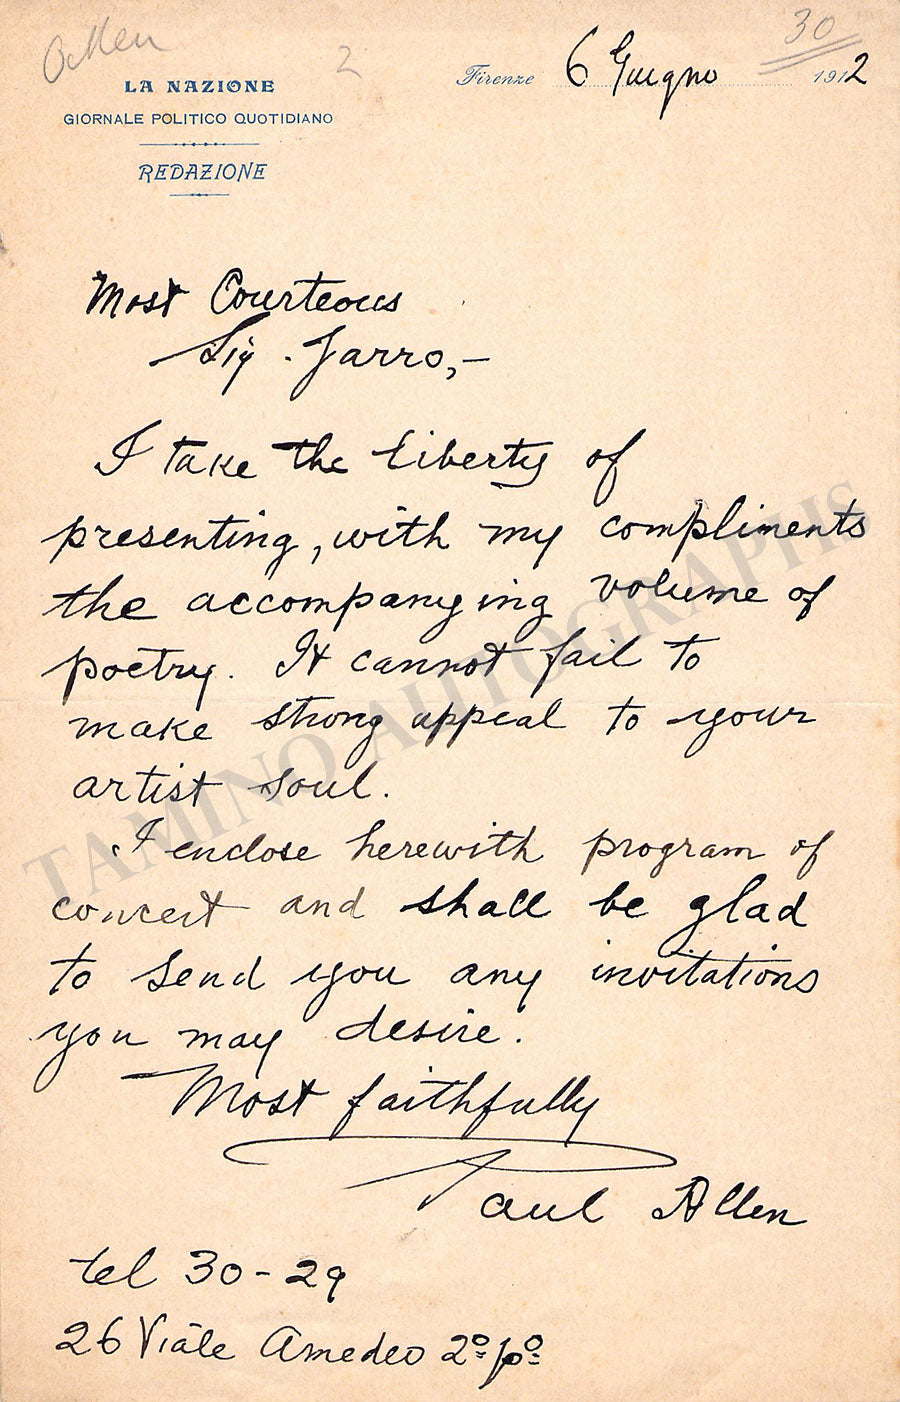 Allen
2
30
LA NAZIONE
GIORNALE POLITICO QUOTIDIANO
REDAZIONE
Firenze 6 Giugno 1912
Most Courteous
Sig. Jarro,—
I take the liberty of
presenting, with my compliments
the accompanying volume of
poetry. It cannot fail to
make strong appeal to your
artist soul.
I enclose herewith program of
concert and shall be glad
to send you any invitations
you may desire.
Most faithfully
Paul Allen
tel 30-29
26 Viale Amedeo 2º pº
TAMINO AUTOGRAPHS